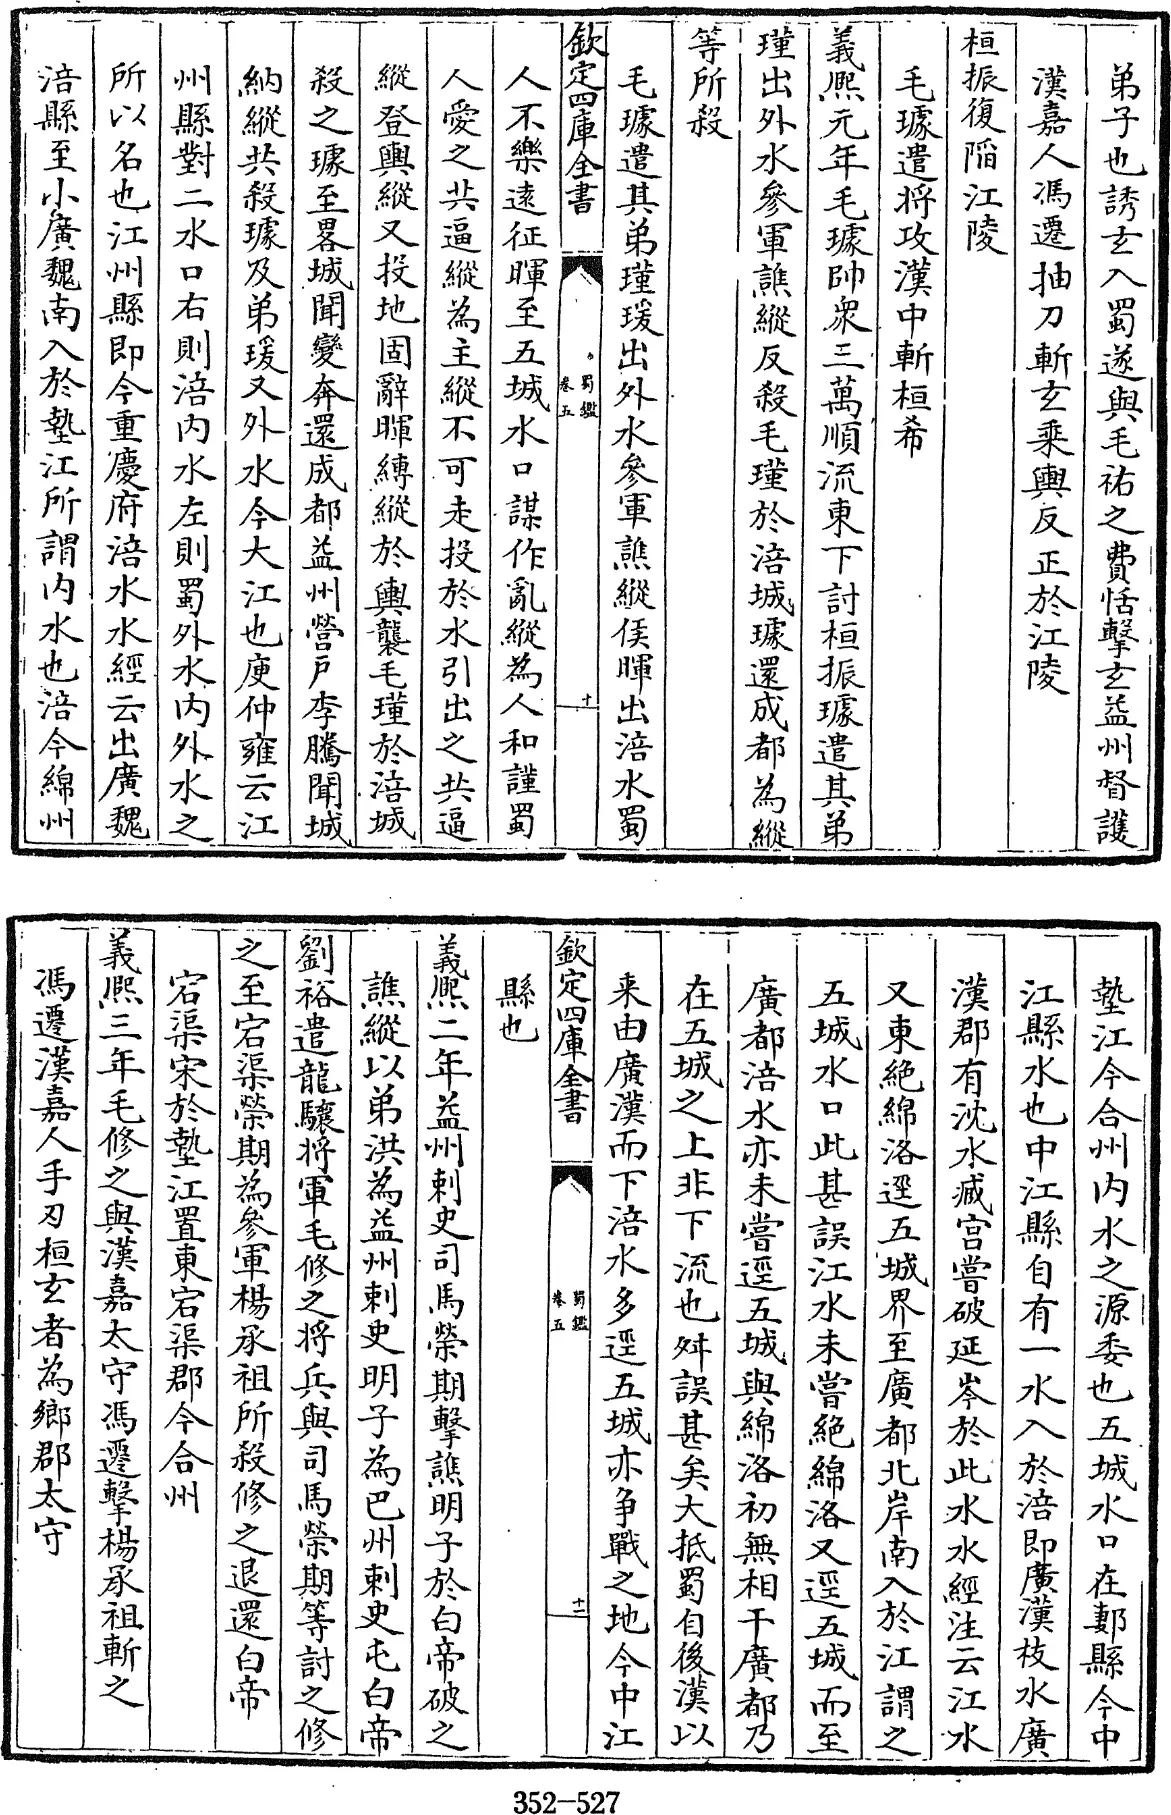 弟子也誘玄入蜀遂與毛祐之費恬擊玄益州督護
漢嘉人馮遷抽刀斬玄乘輿反正於江陵
桓振復陷江陵
毛璩遣將攻漢中斬桓希
義熙元年毛璩帥衆三萬順流東下討桓振璩遣其弟
瑾出外水參軍譙縱反殺毛瑾於涪城璩還成都為縱
等所殺
毛璩遣其弟瑾瑗出外水參軍譙縱侯暉出涪水蜀
欽定四庫全書
蜀鑑
卷五
十
人不樂遠征暉至五城水口謀作亂縱為人和謹蜀
人愛之共逼縱為主縱不可走投於水引出之共逼
縱登輿縱又投地固辭暉縛縱於輿襲毛瑾於涪城
殺之璩至畧城聞變奔還成都益州營戶李騰開城
納縱共殺璩及弟瑗又外水今大江也庾仲雍云江
州縣對二水口右則涪内水左則蜀外水内外水之
所以名也江州縣即今重慶府涪水水經云出廣魏
涪縣至小廣魏南入於墊江所謂内水也涪今綿州
墊江今合州内水之源委也五城水口在郪縣今中
江縣水也中江縣自有一水入於涪即廣漢枝水廣
漢郡有沈水臧宮嘗破延岑於此水水經注云江水
又東絶綿洛逕五城界至廣都北岸南入於江謂之
五城水口此甚誤江水未嘗絶綿洛又逕五城而至
廣都涪水亦未嘗逕五城與綿洛初無相干廣都乃
在五城之上非下流也舛誤甚矣大抵蜀自後漢以
来由廣漢而下涪水多逕五城亦争戰之地今中江
欽定四庫全書
蜀鑑
卷五
十一
縣也
義熙二年益州刺史司馬榮期擊譙明子於白帝破之
譙縱以弟洪為益州刺史明子為巴州刺史屯白帝
劉裕遣龍驤將軍毛修之將兵與司馬榮期等討之修
之至宕渠榮期為參軍楊承祖所殺修之退還白帝
宕渠宋於墊江置東宕渠郡今合州
義熙三年毛修之與漢嘉太守馮遷擊楊承祖斬之
馮遷漢嘉人手刃桓玄者為鄉郡太守
352-527